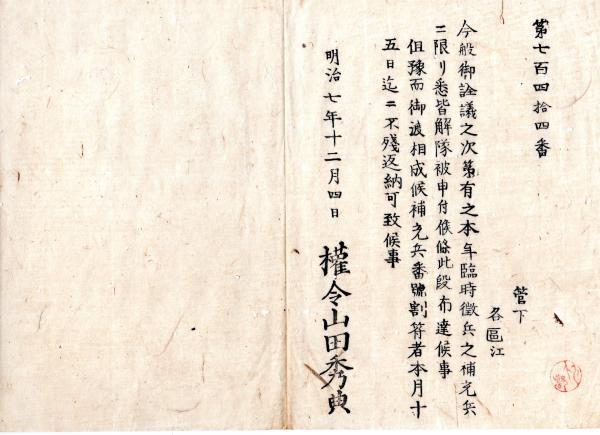 第七百四拾四番
管下
各區江
今般御詮議之次第有之本年臨時徴兵之補充兵
ニ限リ悉皆解隊被申付候條此段布達候事
但豫而御渡相成候補充兵番號割符者本月十
五日迄ニ不殘返納可致候事
明治七年十二月四日
權令山田秀典